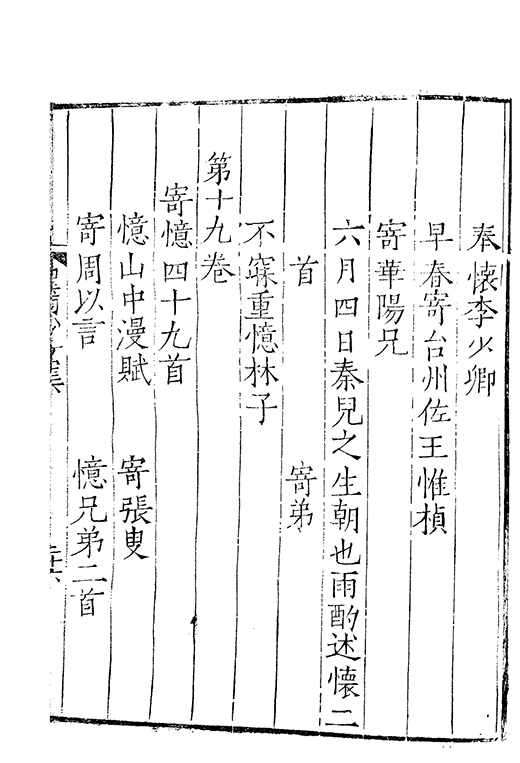 奉懷李少卿
早春寄台州佐王惟楨
寄華陽兄
六月四日秦兒之生朝也雨酌述懷二
首　寄弟
不寐重憶林子
第十九卷
寄憶四十九首
憶山中漫賦　寄張叟
寄周以言　憶兄弟二首